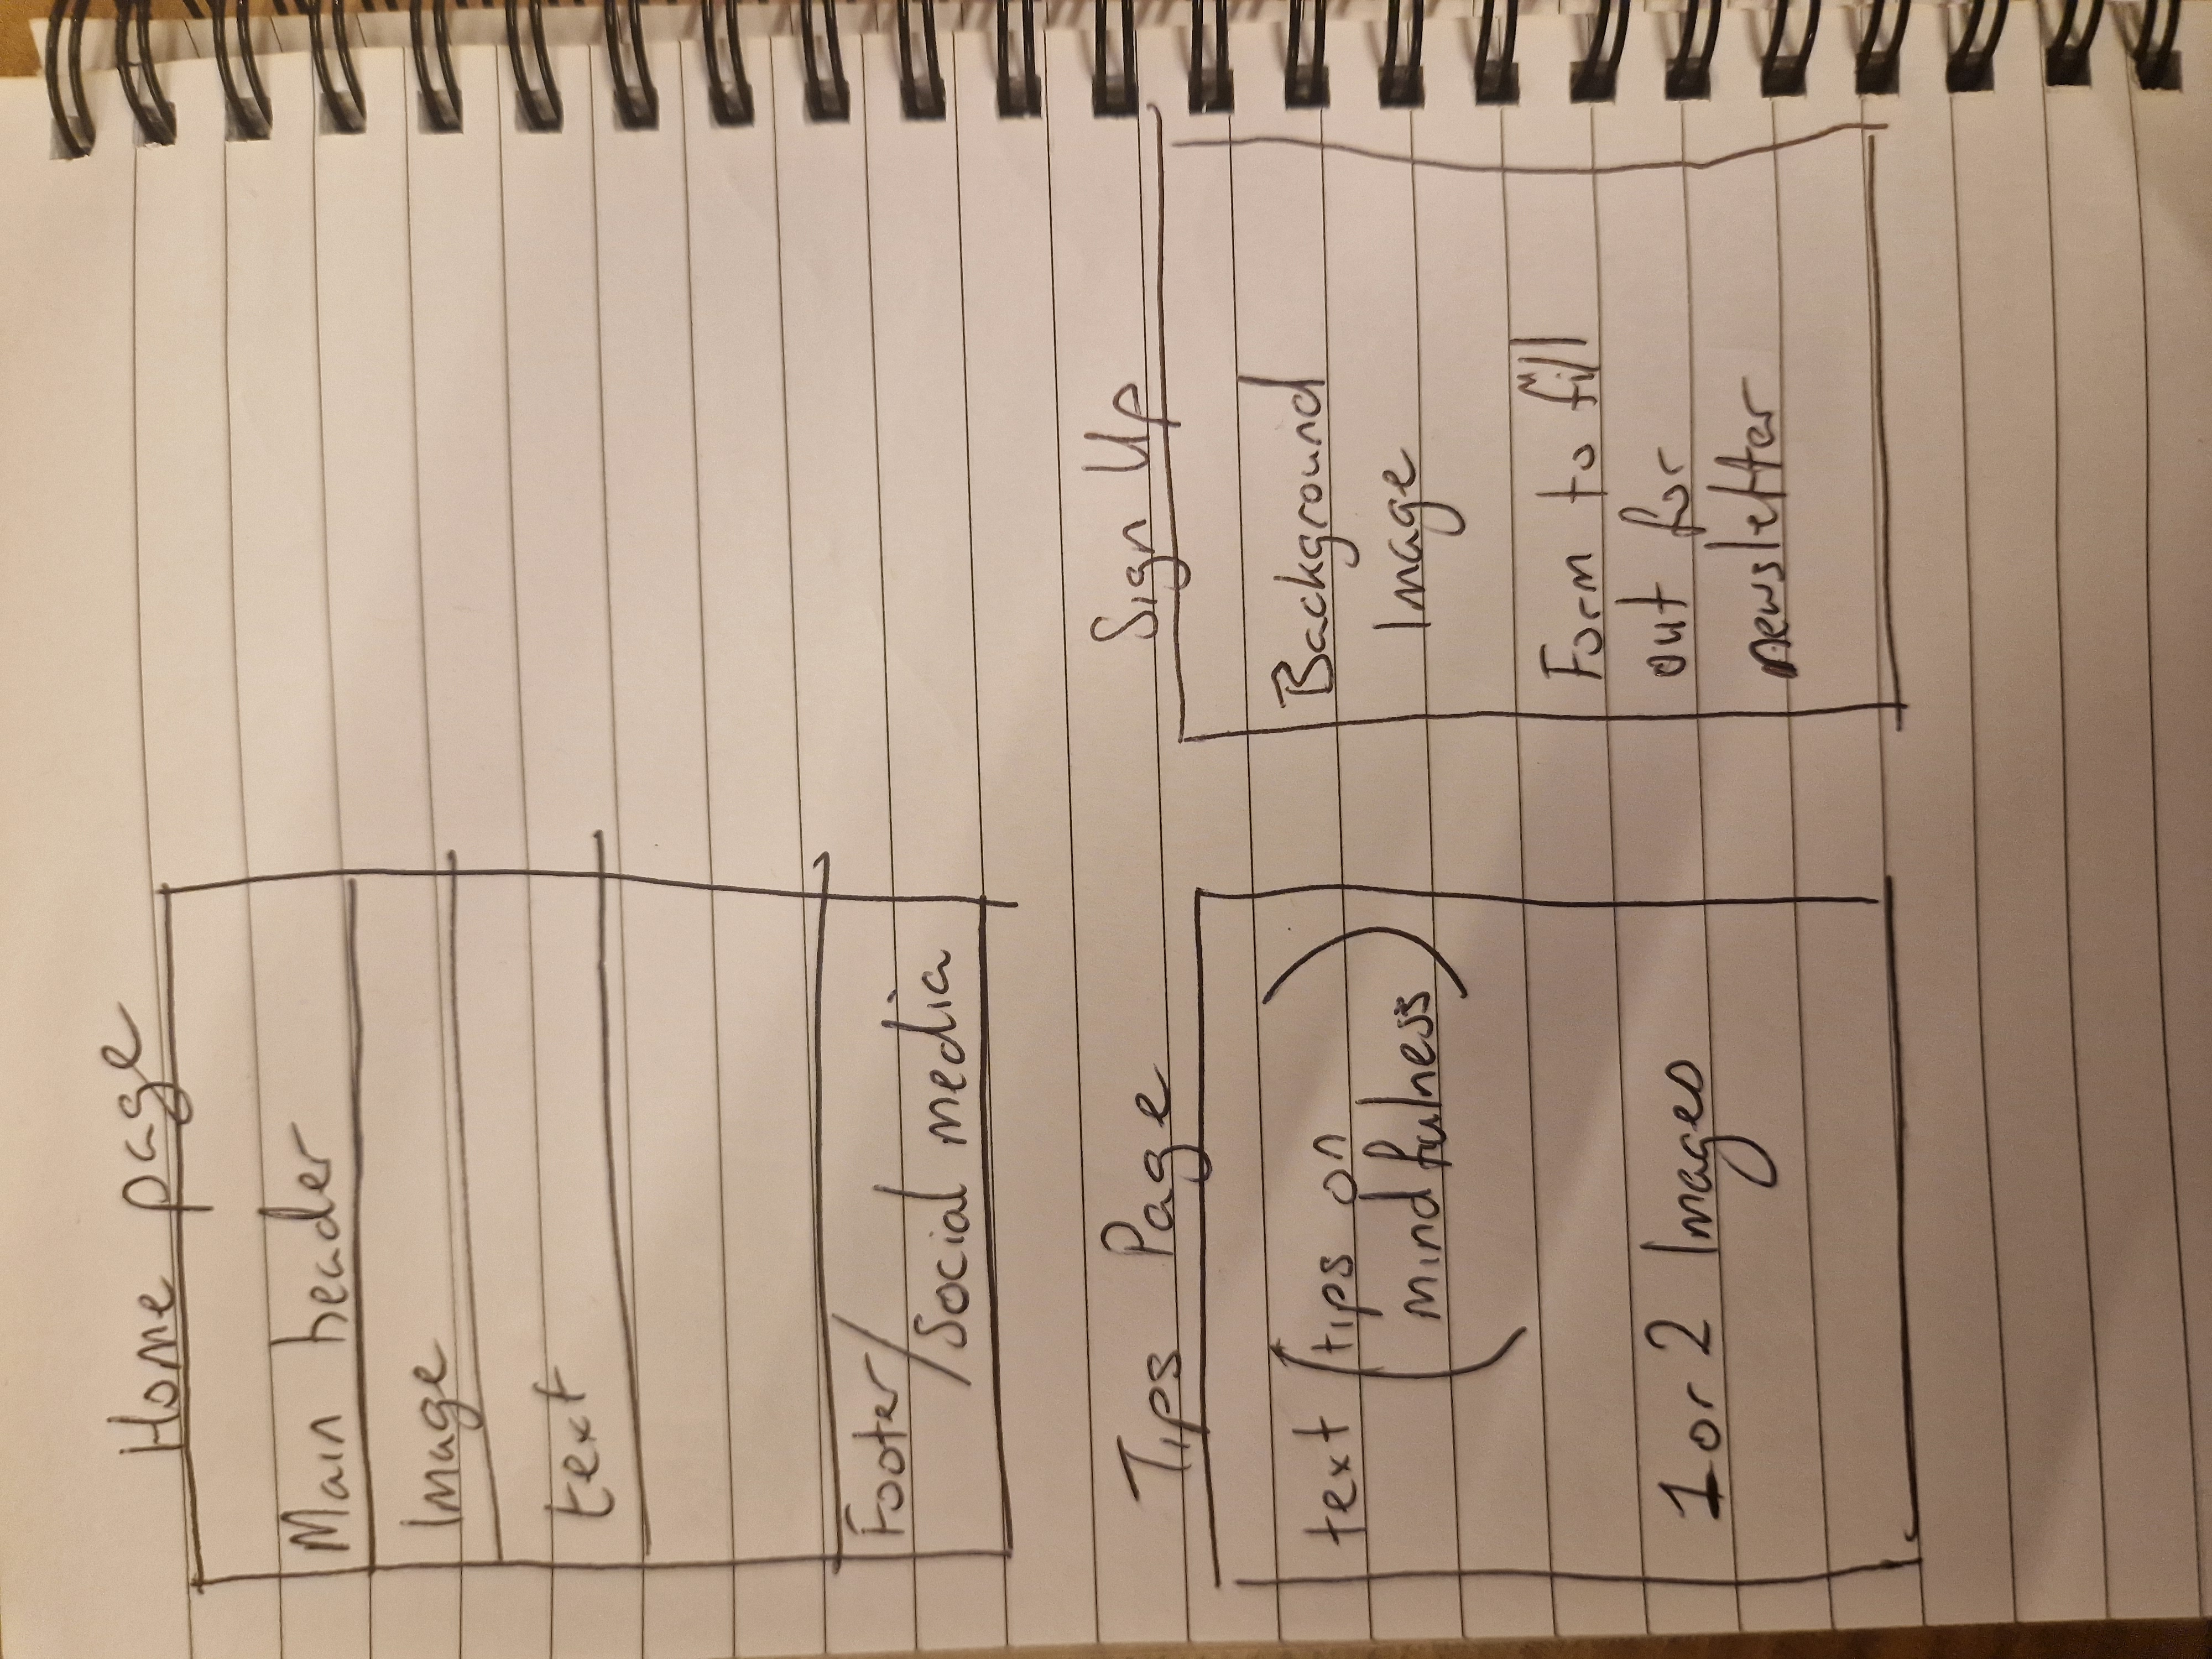 Home page
Main header
Image
text
Footer/
Social media
Tips Page
text (tips on
mindfulness)
1 or 2 Images
Sign Up
Background
Image
Form to fill
out for
newsletter